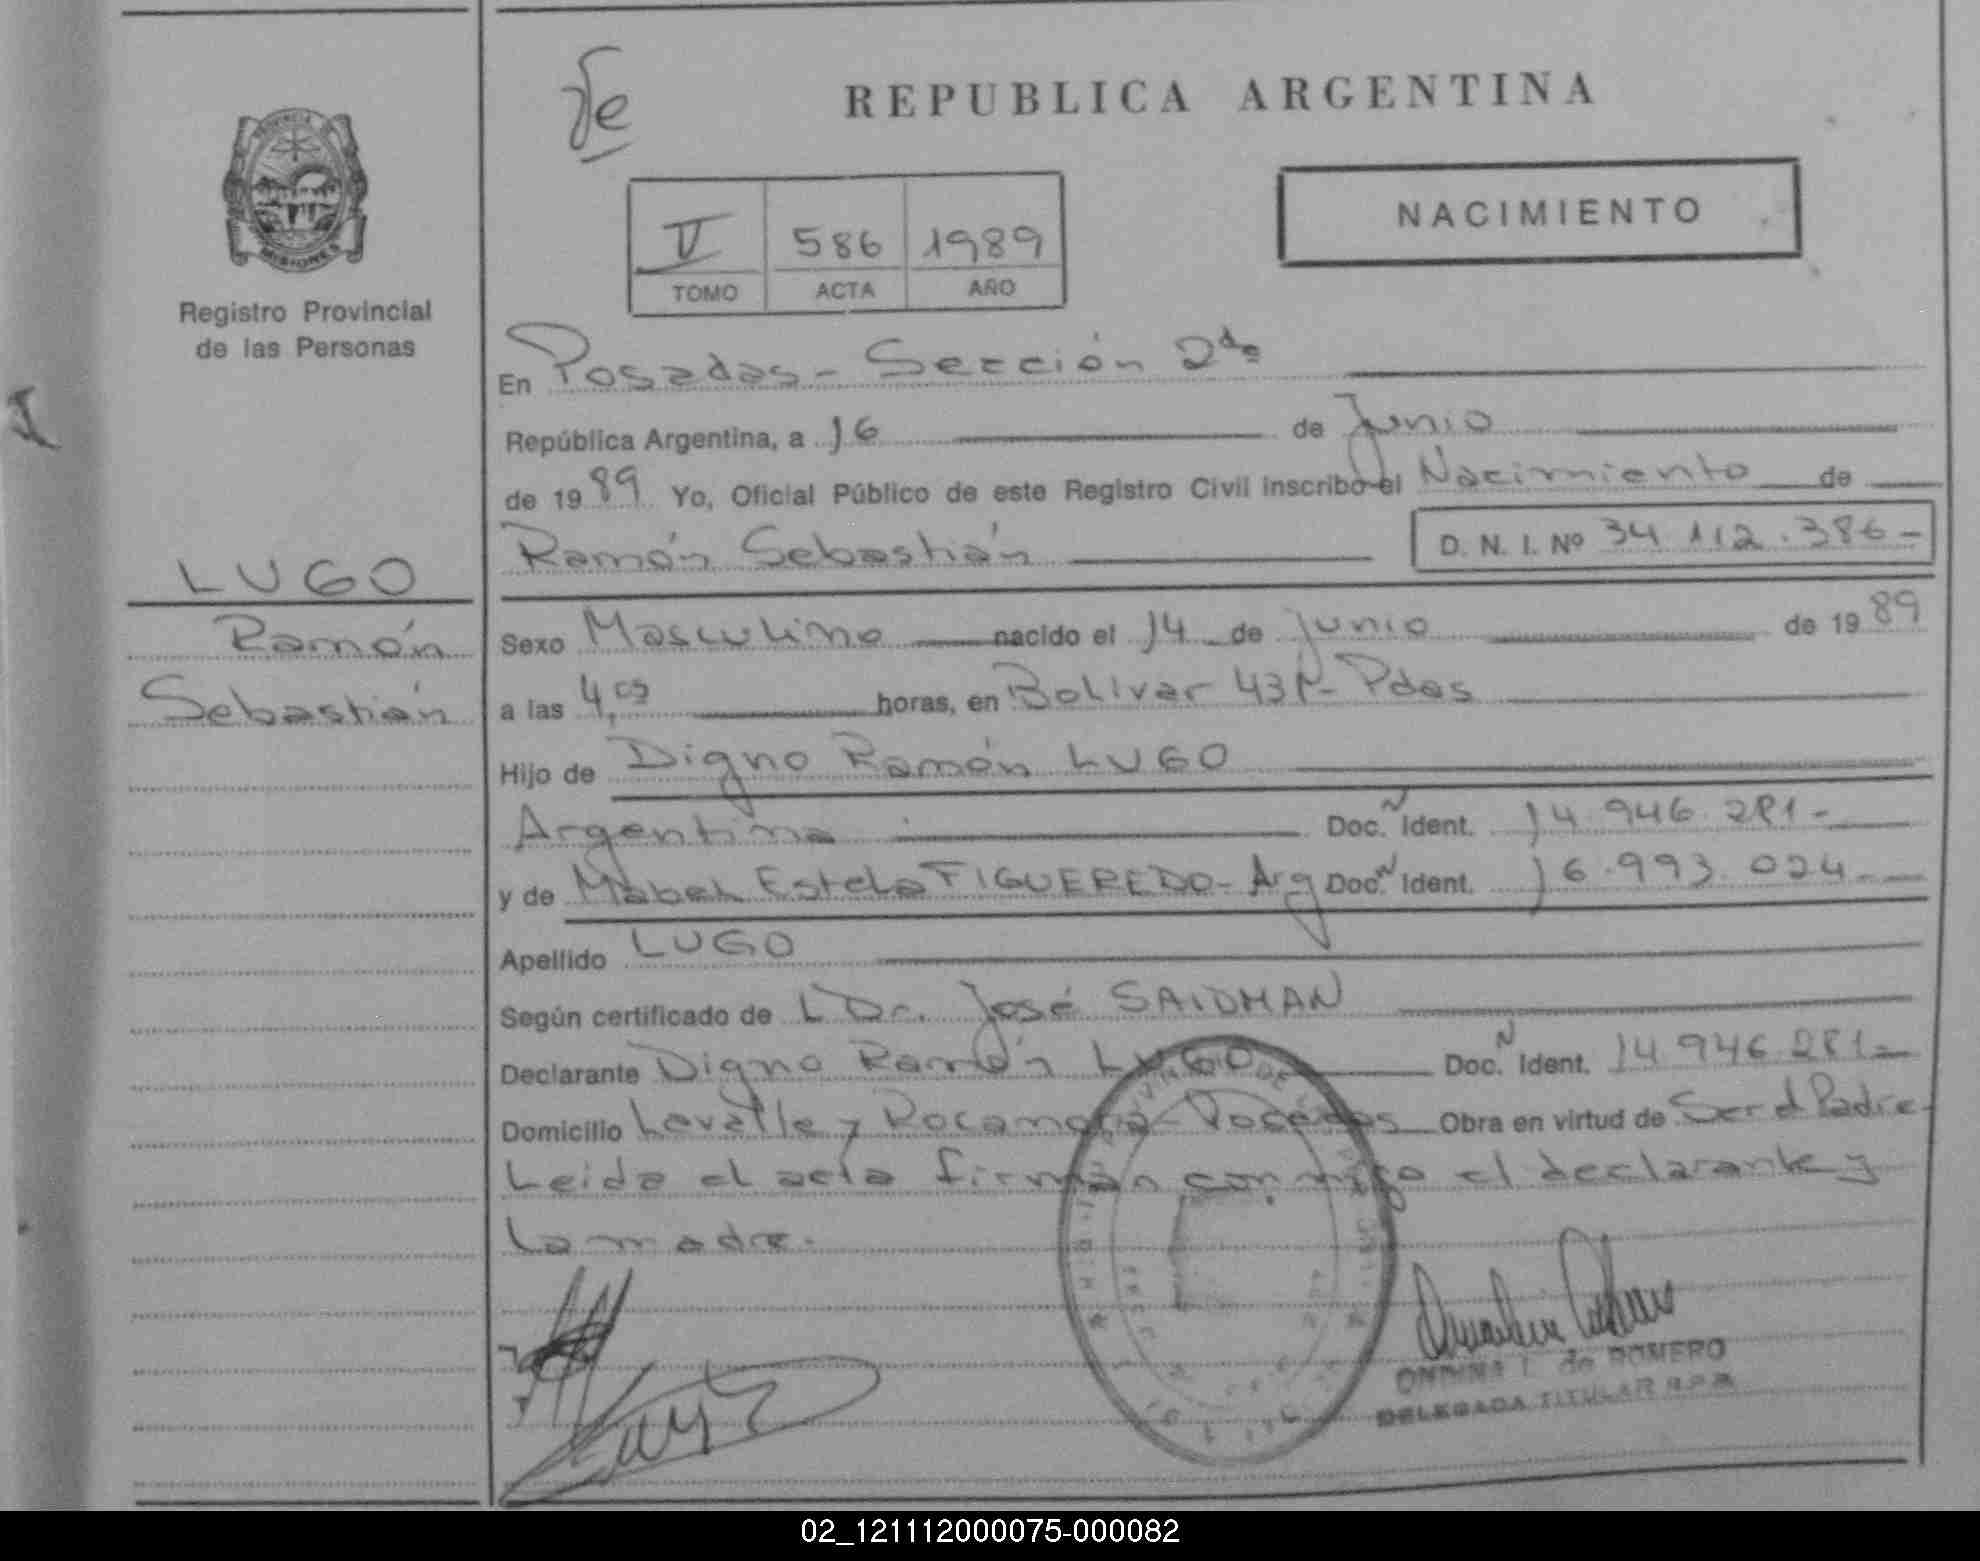 REPUBLICA ARGENTINA
PROVINCIA
MISIONES
Registro Provincial
de las Personas
V 586 1989
TOMO ACTA AÑO
NACIMIENTO
En Posadas - Sección 2da
República Argentina, a 16 de Junio
de 1989 Yo, Oficial Público de este Registro Civil inscribo el Nacimiento de
Ramón Sebastián D. N. I. Nº 34.112.386-
LUGO
Ramón
Sebastián
Sexo Masculino nacido el 14 de junio de 1989
a las 4,00 horas, en Bolivar 431- Pdas
Hijo de Digno Ramón LUGO
Argentina Doc. N Ident. 14.946.281-
y de Mabel Estela FIGUEREDO - Arg Doc. N Ident. 16.993.024-
Apellido LUGO
Según certificado de L Dr. José SAIDMAN
Declarante Digno Ramón LUGO Doc. N Ident. 14.946.281-
Domicilio Lavalle y Rocamora - Posadas Obra en virtud de Ser el Padre.
Leida el acta firman conmigo el declarante y
la madre.
ONDINA I. de ROMERO
DELEGADA TITULAR R.P.P.
02_121112000075-000082